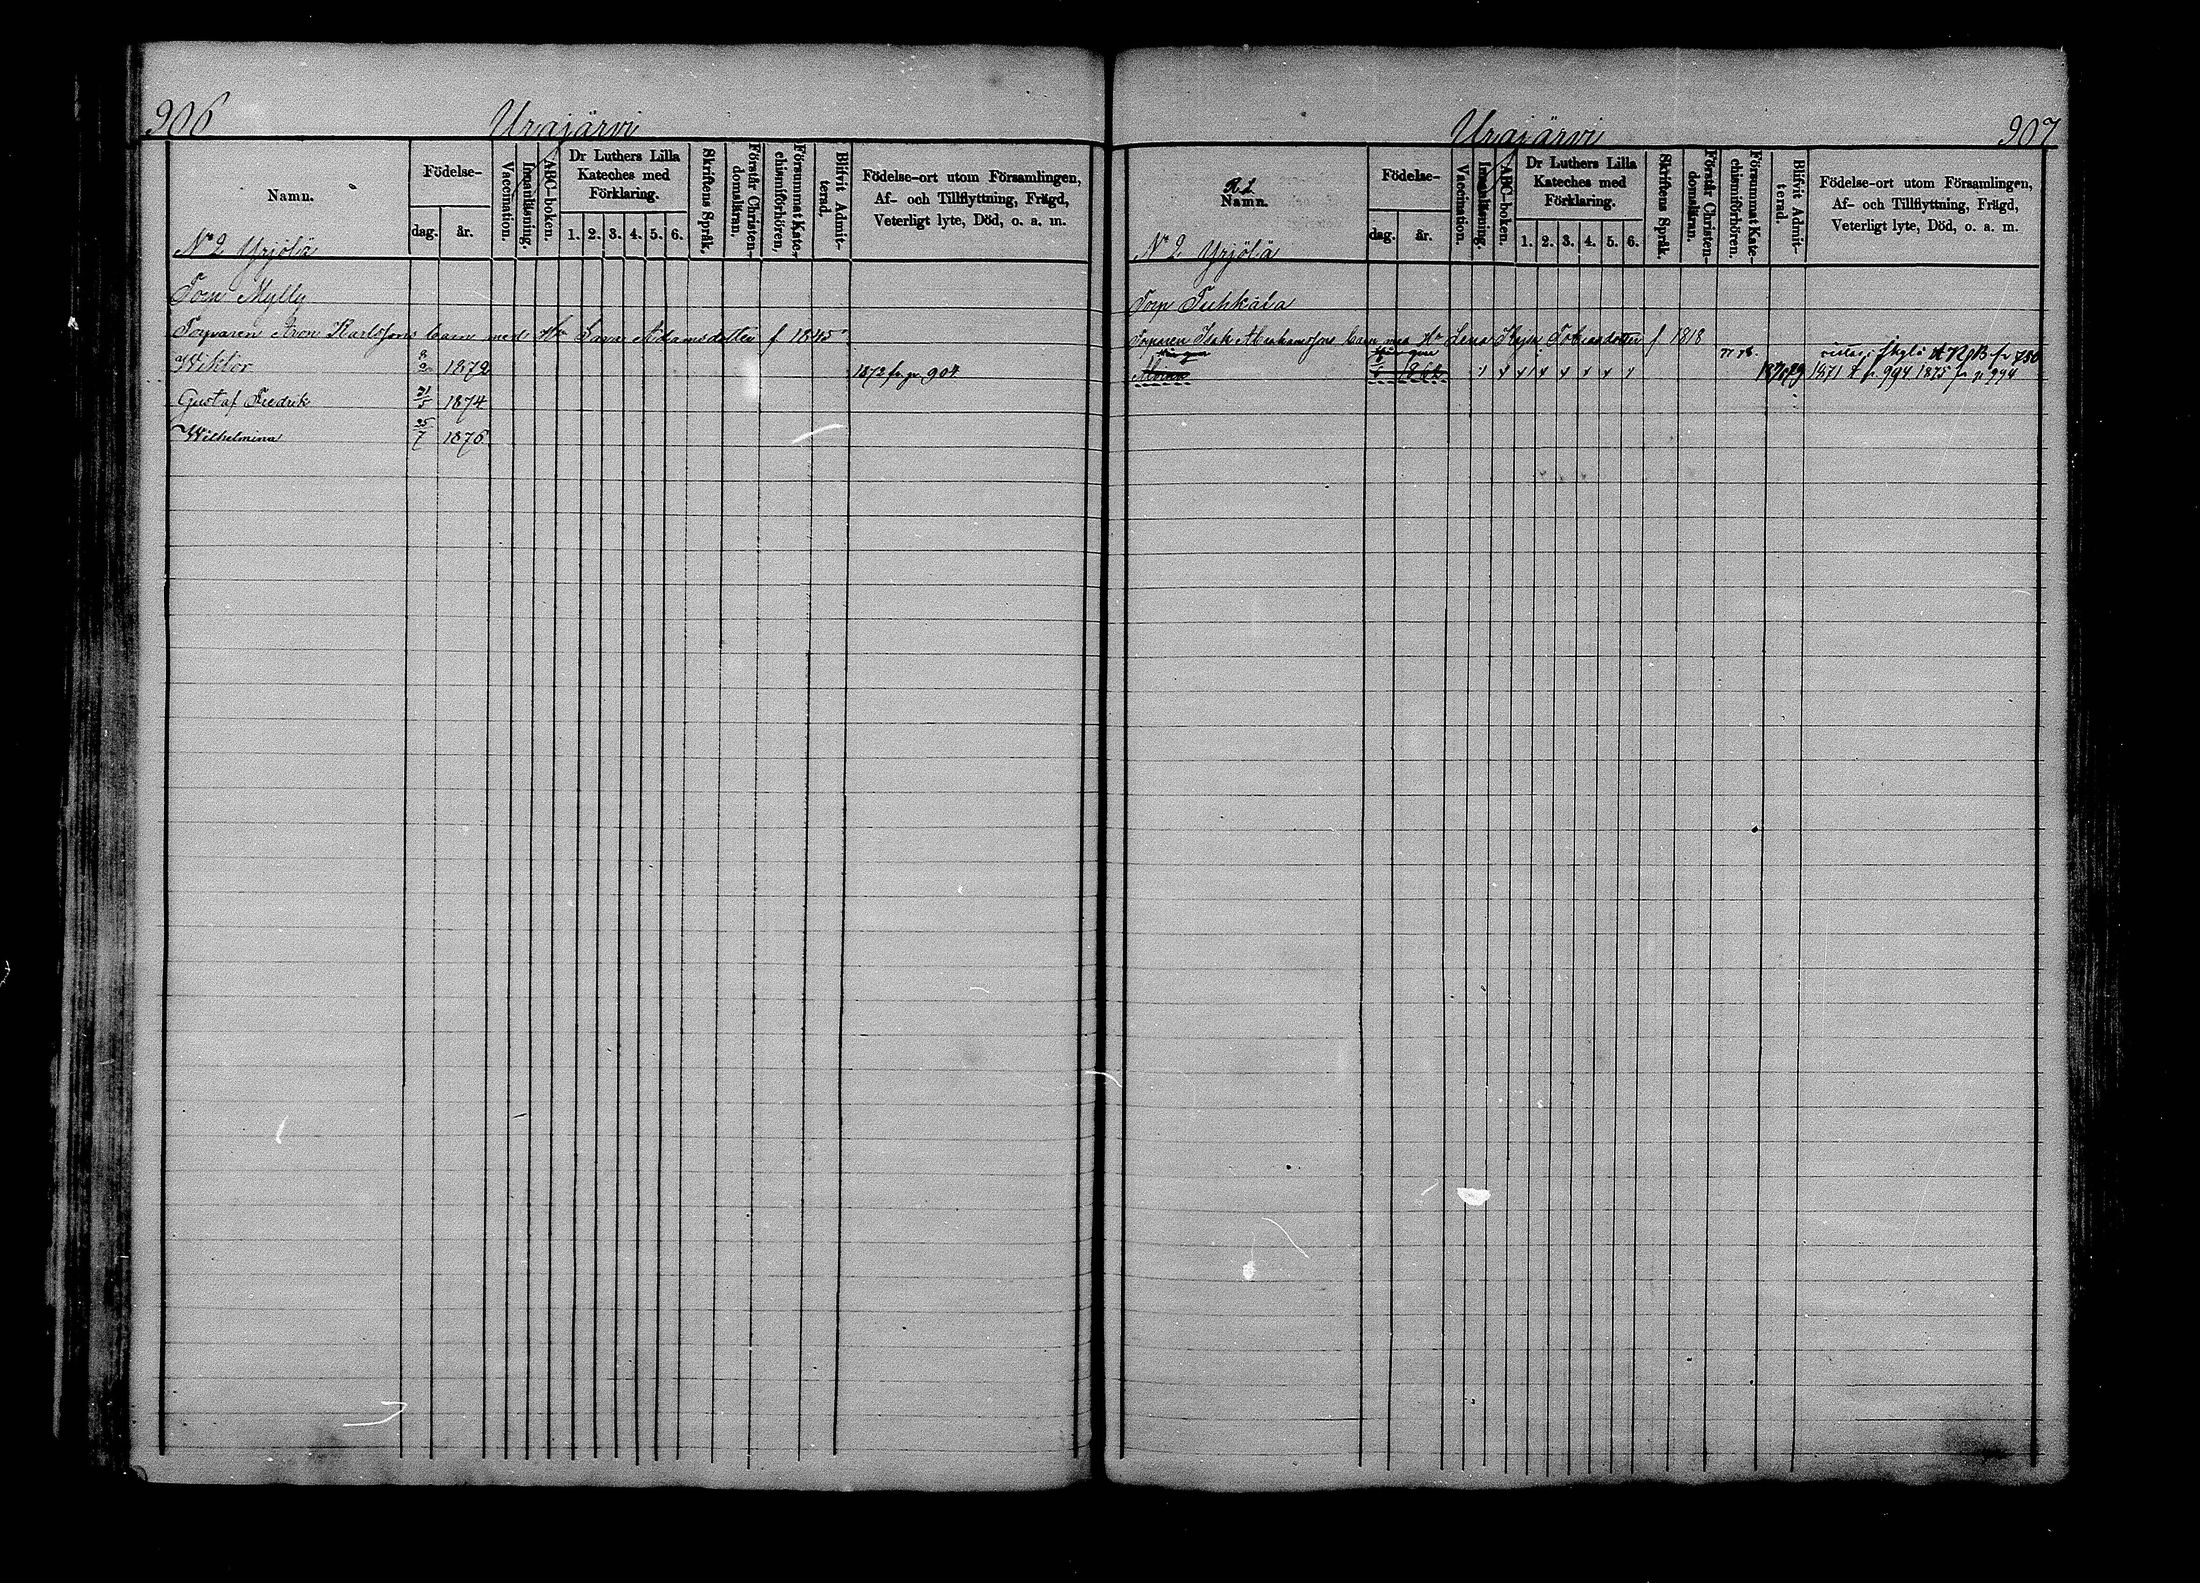 906
Urajärvi
Namn.
Födelse-
dag. år.
Vaccination.
Innanläsning.
ABC-boken.
Dr Luthers Lilla
Kateches med
Förklaring.
1. 2. 3. 4. 5. 6.
Skriftens Språk.
Förstår Christen-
domsläran.
Försummat Kate-
chismiförhören,
Blifvit Admit-
terad.
Födelse-ort utom Församlingen,
Af- och Tillflyttning, Frägd,
Veterligt lyte, Död, o. a. m.
No 2 Yrjölä
Torp Mylly
Torparen Aron Karlssons barn med Hu Sara Adamsdotter f 1845
Wiktor 1872 1872 fr p 904
Gustaf Fredrik 31/5 1874
Wilhelmina 25/7 1876
Urajärvi
907
Namn.
Födelse-
dag. år.
Vaccination.
Innanläsning.
ABC-boken.
Dr Luthers Lilla
Kateches med
Förklaring.
1. 2. 3. 4. 5. 6.
Skriftens Språk.
Förstår Christen-
domsläran.
Försummat Kate-
chismiförhören.
Blifvit Admit-
terad.
Födelse-ort utom Församlingen,
Af- och Tillflyttning, Frägd,
Veterligt lyte, Död, o. a. m.
No 2 Yrjölä
Torp Tuhkala
Torparen Isak Abrahamssons barn med Hu Lena Kajsa Tobiasdotter f 1818
77 78. 750
1862 1871 t p 994 1875 fr p 994